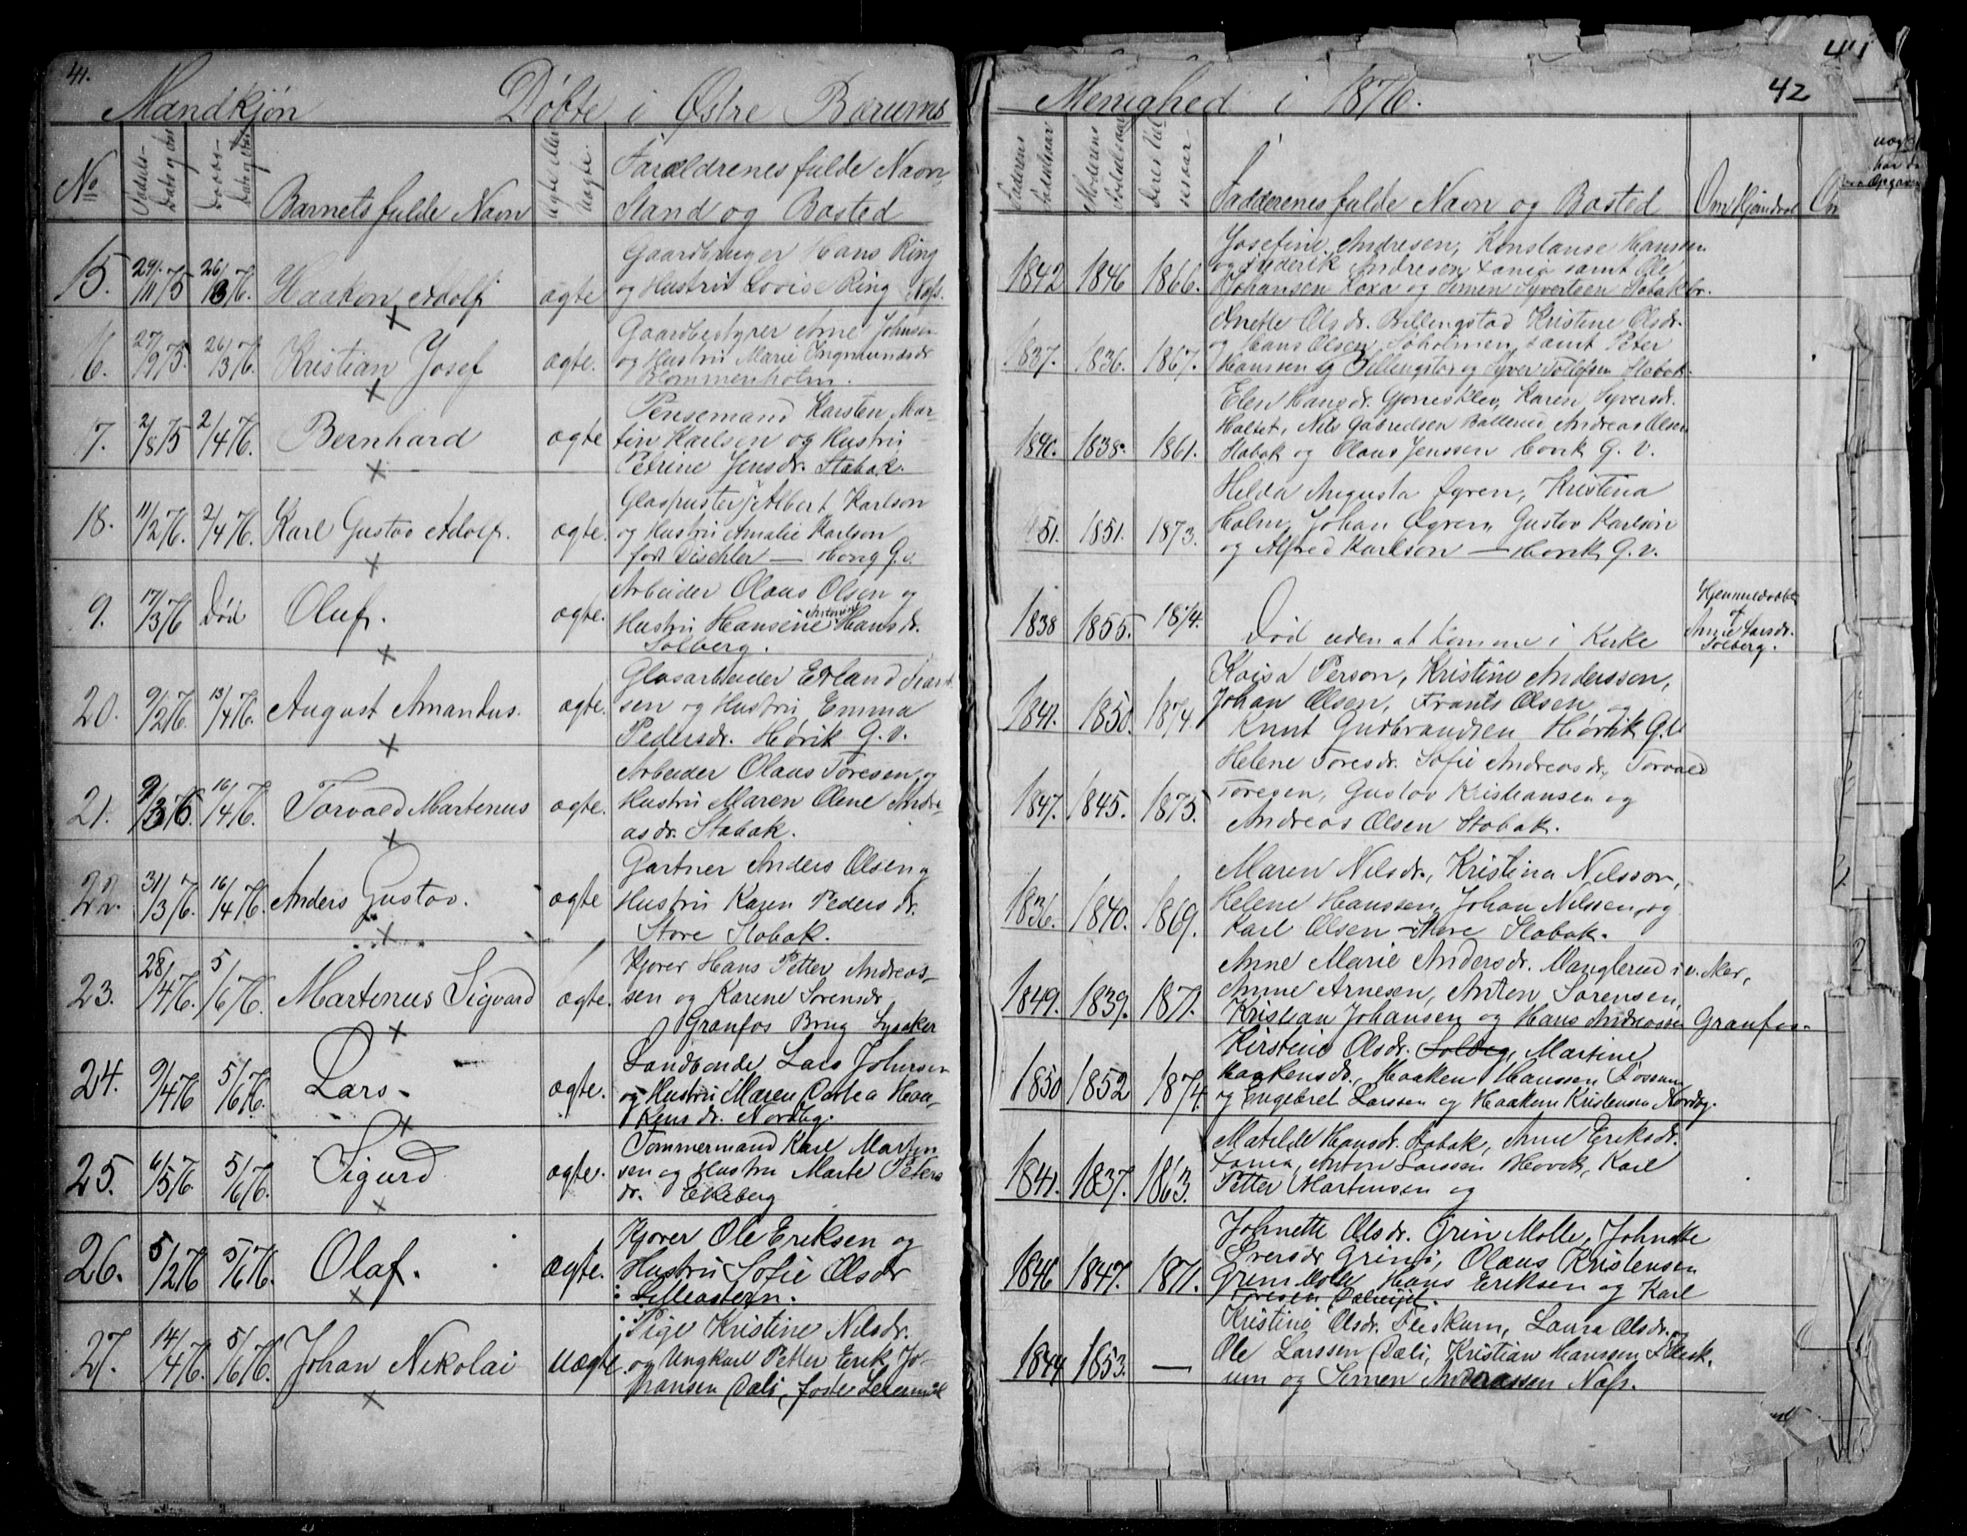 41.
Mandkjøn Døbte i Østre Bærums
No
Barnets fulde Navn
Forældrenes fulde Navn,
Stand og Bosted
15. 29/11 75 26/3 76. Haakon Adolf ægte
Gaardbruger Hans Ring
og Hustru Lovise Ring Næs.
6. 27/9 75. 26/3 76. Kristian Josef ægte.
Gaardbestyrer Arne Johnsen
og Hustru Marie Ingmundsdr
Blommenholm.
7. 2/8 75 2/4 76. Bernhard ægte
Pensemand Karsten Mar-
tin Karlsen og Hustru
Petrine Jensdr. Stabæk.
18. 11/2 76. 2/4 76. Karl Gustav Adolf. ægte.
Glaspuster Albert Karlson
og Hustru Amalie Karlson
født Tischler — Høvig G.v.
9. 17/3 76 Død Oluf. ægte.
Arbeider Olaus Olsen og
Hustru Hansine Hansdr.
Solberg.
20. 9/2 76. 13/4 76. August Amandus. ægte.
Glasarbeider Erland
sen og Hustru Emma
Pedersdr. Høvik G.V.
21. 9/3 76. 16/4 76. Torvald Martenus ægte.
Arbeider Olaus Toresen og
Hustru Maren Olene Andre-
asdr. Stabæk.
22. 31/3 76. 16/4 76. Anders Gustav. ægte
Gartner Anders Olsen og
Hustru Karen Pedersdr.
Store Stabæk.
23. 28/4 76. 5/6 76. Martenus Sigvard ægte.
Kjører Hans Petter Andreas-
sen og Karene Sørensdr.
Granfos Brug Lysaker
24. 9/4 76 5/6 76. Lars. ægte.
Landhandler Lars Johnsen
og Hustru Maren Dortea Haa-
kensdr. Nordby.
25. 6/5 76 5/6 76. Sigurd ægte.
Tømmermand Karl Martin
sen og Hustru Marte Peters
dr. Ekeberg
26. 5/2 76 5/6 76. Olaf. ægte.
Kjører Ole Eriksen og
Hustru Sofie Olsdr
Lilleøstern.
27. 14/4 76. 5/6 76. Johan Nikolai uægte
Pige Kristine Nilsdr.
og Ungkarl Petter Erik Jo-
hansen Dæli, første Leiermaal
41
42
Menighed i 1876.
Faderens Fødselsaar
Moderens Fødselsaar
Fadderenes fulde Navn og Bosted
Om Hjemdøbt
1842 1846 1866.
Josefine Andresen, Konstanse Hanssen
og Frederik Andresen, samt Ole
Johansen Koxa og Simen Syvertsen Stabæk br.
1837. 1836. 1867.
Anette Olsdr. Billingstad Kristine Olsdr.
og Hans Olsen Søholmen, samt Peter
Hanssen Billingstad og Syver Tollefsen Stabæk.
1840. 1838. 1861.
Elen Hansdr. Gjønnesklev, Karen Syversdr.
Haltet, Nils Gabrielsen Ballerud, Andreas Olsen
Stabæk og Olaus Jenssen Høvik G.V.
51. 1851. 1873.
Hilda Augusta Syren, Kristina
Holm, Johan Syren, Gustav Karlson
og Alfred Karlson — Høvik G.v.
1838 1855. 1874.
Død uden at komme i Kirke
Hjemmedøbt
af
Anne Larsdr.
Solberg.
1841. 1850. 1874
Kaisa Person, Kristine Anderssen,
Johan Olsen, Frants Olsen og
Knut Gudbrandsen Høvik G.V
1847. 1845. 1875.
Helene Toresdr. Sofie Andreasdr, Torvald
Toresen, Gustav Kristiansen og
Andreas Olsen Stabæk.
1836. 1840. 1869.
Maren Nilsdr., Kristina Nilsson,
Helene Hanssen, Johan Nilssen, og
Karl Olsen Store Stabæk.
1849. 1839. 1871.
Anne Marie Andersdr. Manglerud i v. Aker,
Anne Arnesen, Anton Sørensen,
Kristian Johansen og Hans Andreassen Granfos.
1850 1852 1874.
Kirstine Olsdr. Solberg, Martine
Haakensdr., Haaken Hanssen Fossum
og Engebret Larssen og Haaken Kristensen Nordby.
1841. 1837. 1863.
Matilde Hansdr. Stabæk, Anne Eriksdr.
Anton Larssen Høvik, Karl
Petter Martinsen og
1846 1847. 1871.
Johnette Olsdr. Grini Mølle, Johnette
Iversdr Grini, Olaus Kristensen
Grini Mølle Hans Eriksen og Karl
1844 1853. —
Kristine Olsdr. Fleskum, Laura Olsdr. og
Ole Larssen Dæli, Kristian Hanssen Flesk-
um og Simen Andreassen Næs.